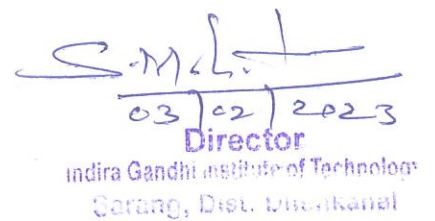 03/02/2023
Director
Indira Gandhi Institute of Technology
Sarang, Dist. Dhenkanal